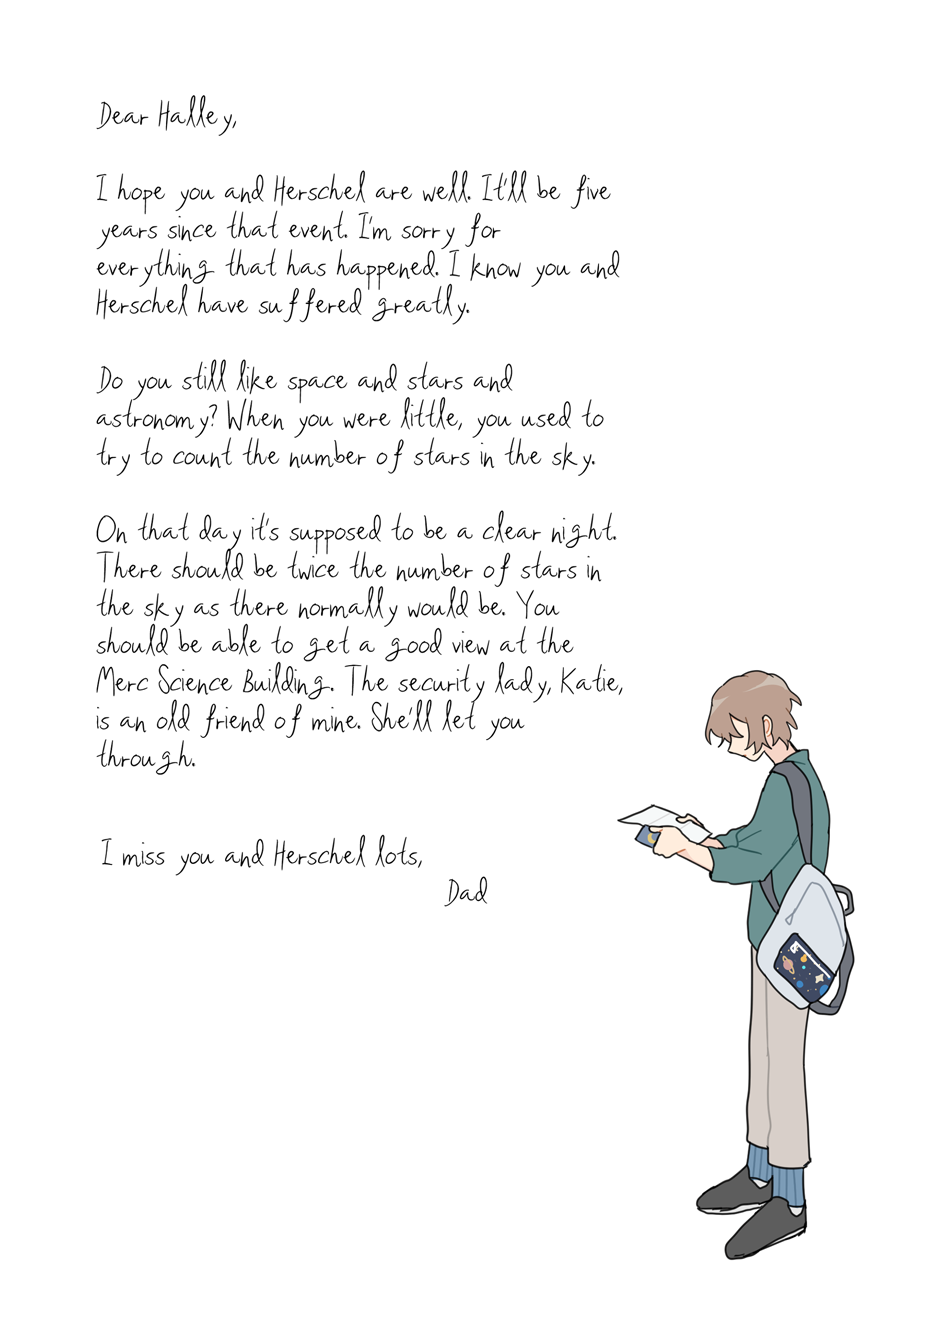 Dear Halley,
I hope you and Herschel are well. It'll be five
years since that event. I'm sorry for
everything that has happened. I know you and
Herschel have suffered greatly.
Do you still like space and stars and
astronomy? When you were little, you used to
try to count the number of stars in the sky.
On that day it's supposed to be a clear night.
There should be twice the number of stars in
the sky as there normally would be. You
should be able to get a good view at the
Merc Science Building. The security lady, Katie,
is an old friend of mine. She'll let you
through.
I miss you and Herschel lots,
Dad